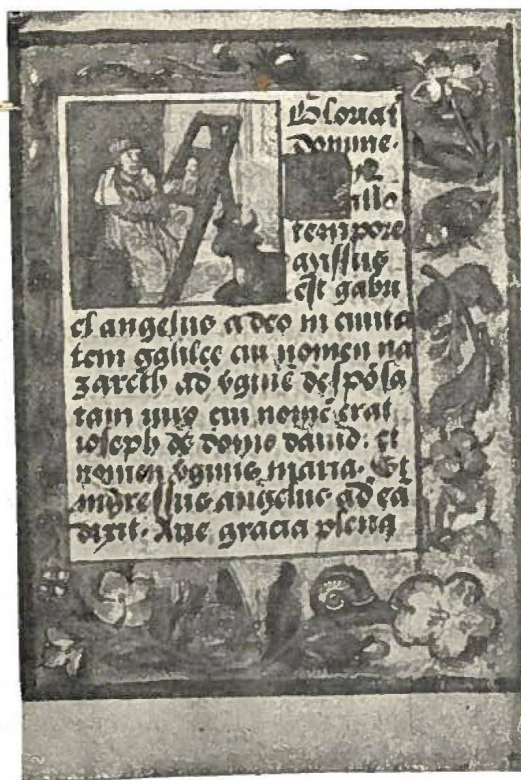 Gloria ti
domine.
N
illo
tempore
missus
est gabri
el angelus a deo in ciuita
tem galilee cui nomen na
zareth ad v̄gine͂ despo͂sa
tam uiro cui nome͂ erat
ioseph de domo dauid: et
nomen v̄ginis maria. Et
ingressus angelus ad ea͂
dixit. Aue gracia plena